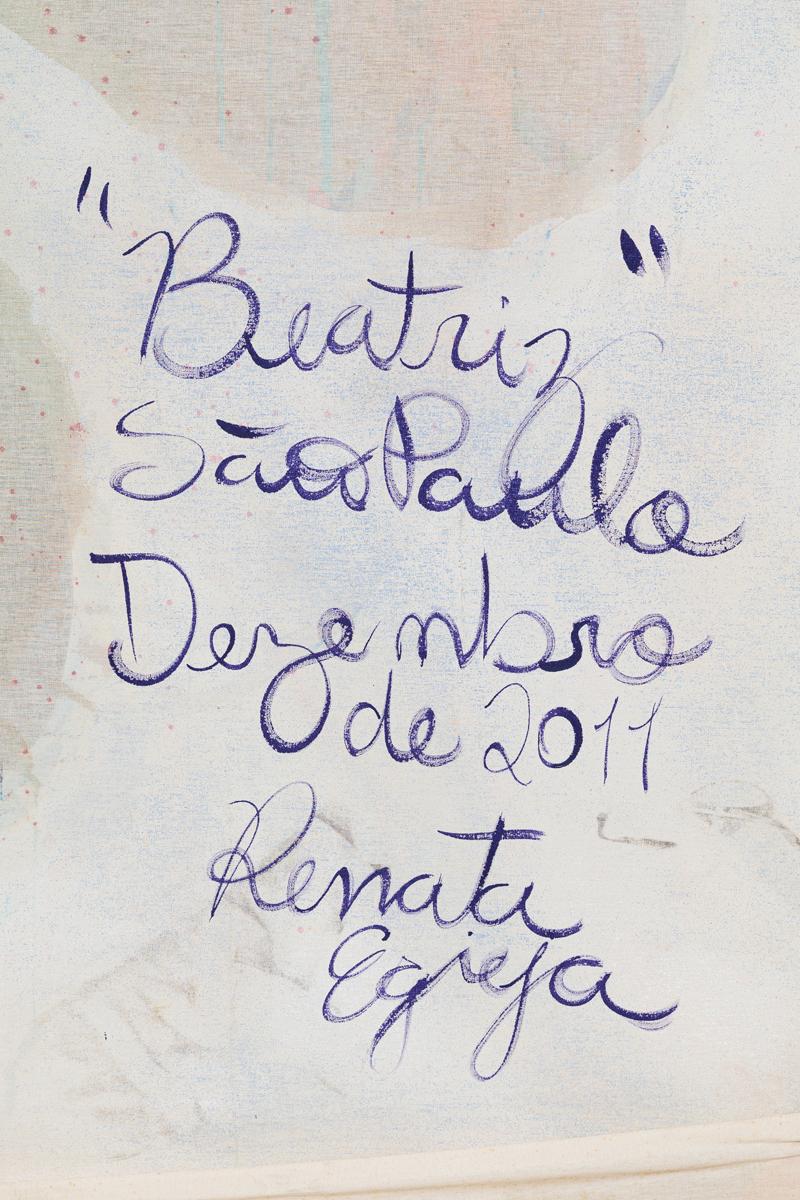 "Beatriz"
São Paulo
Dezembro
de 2011
Renata
Egreja